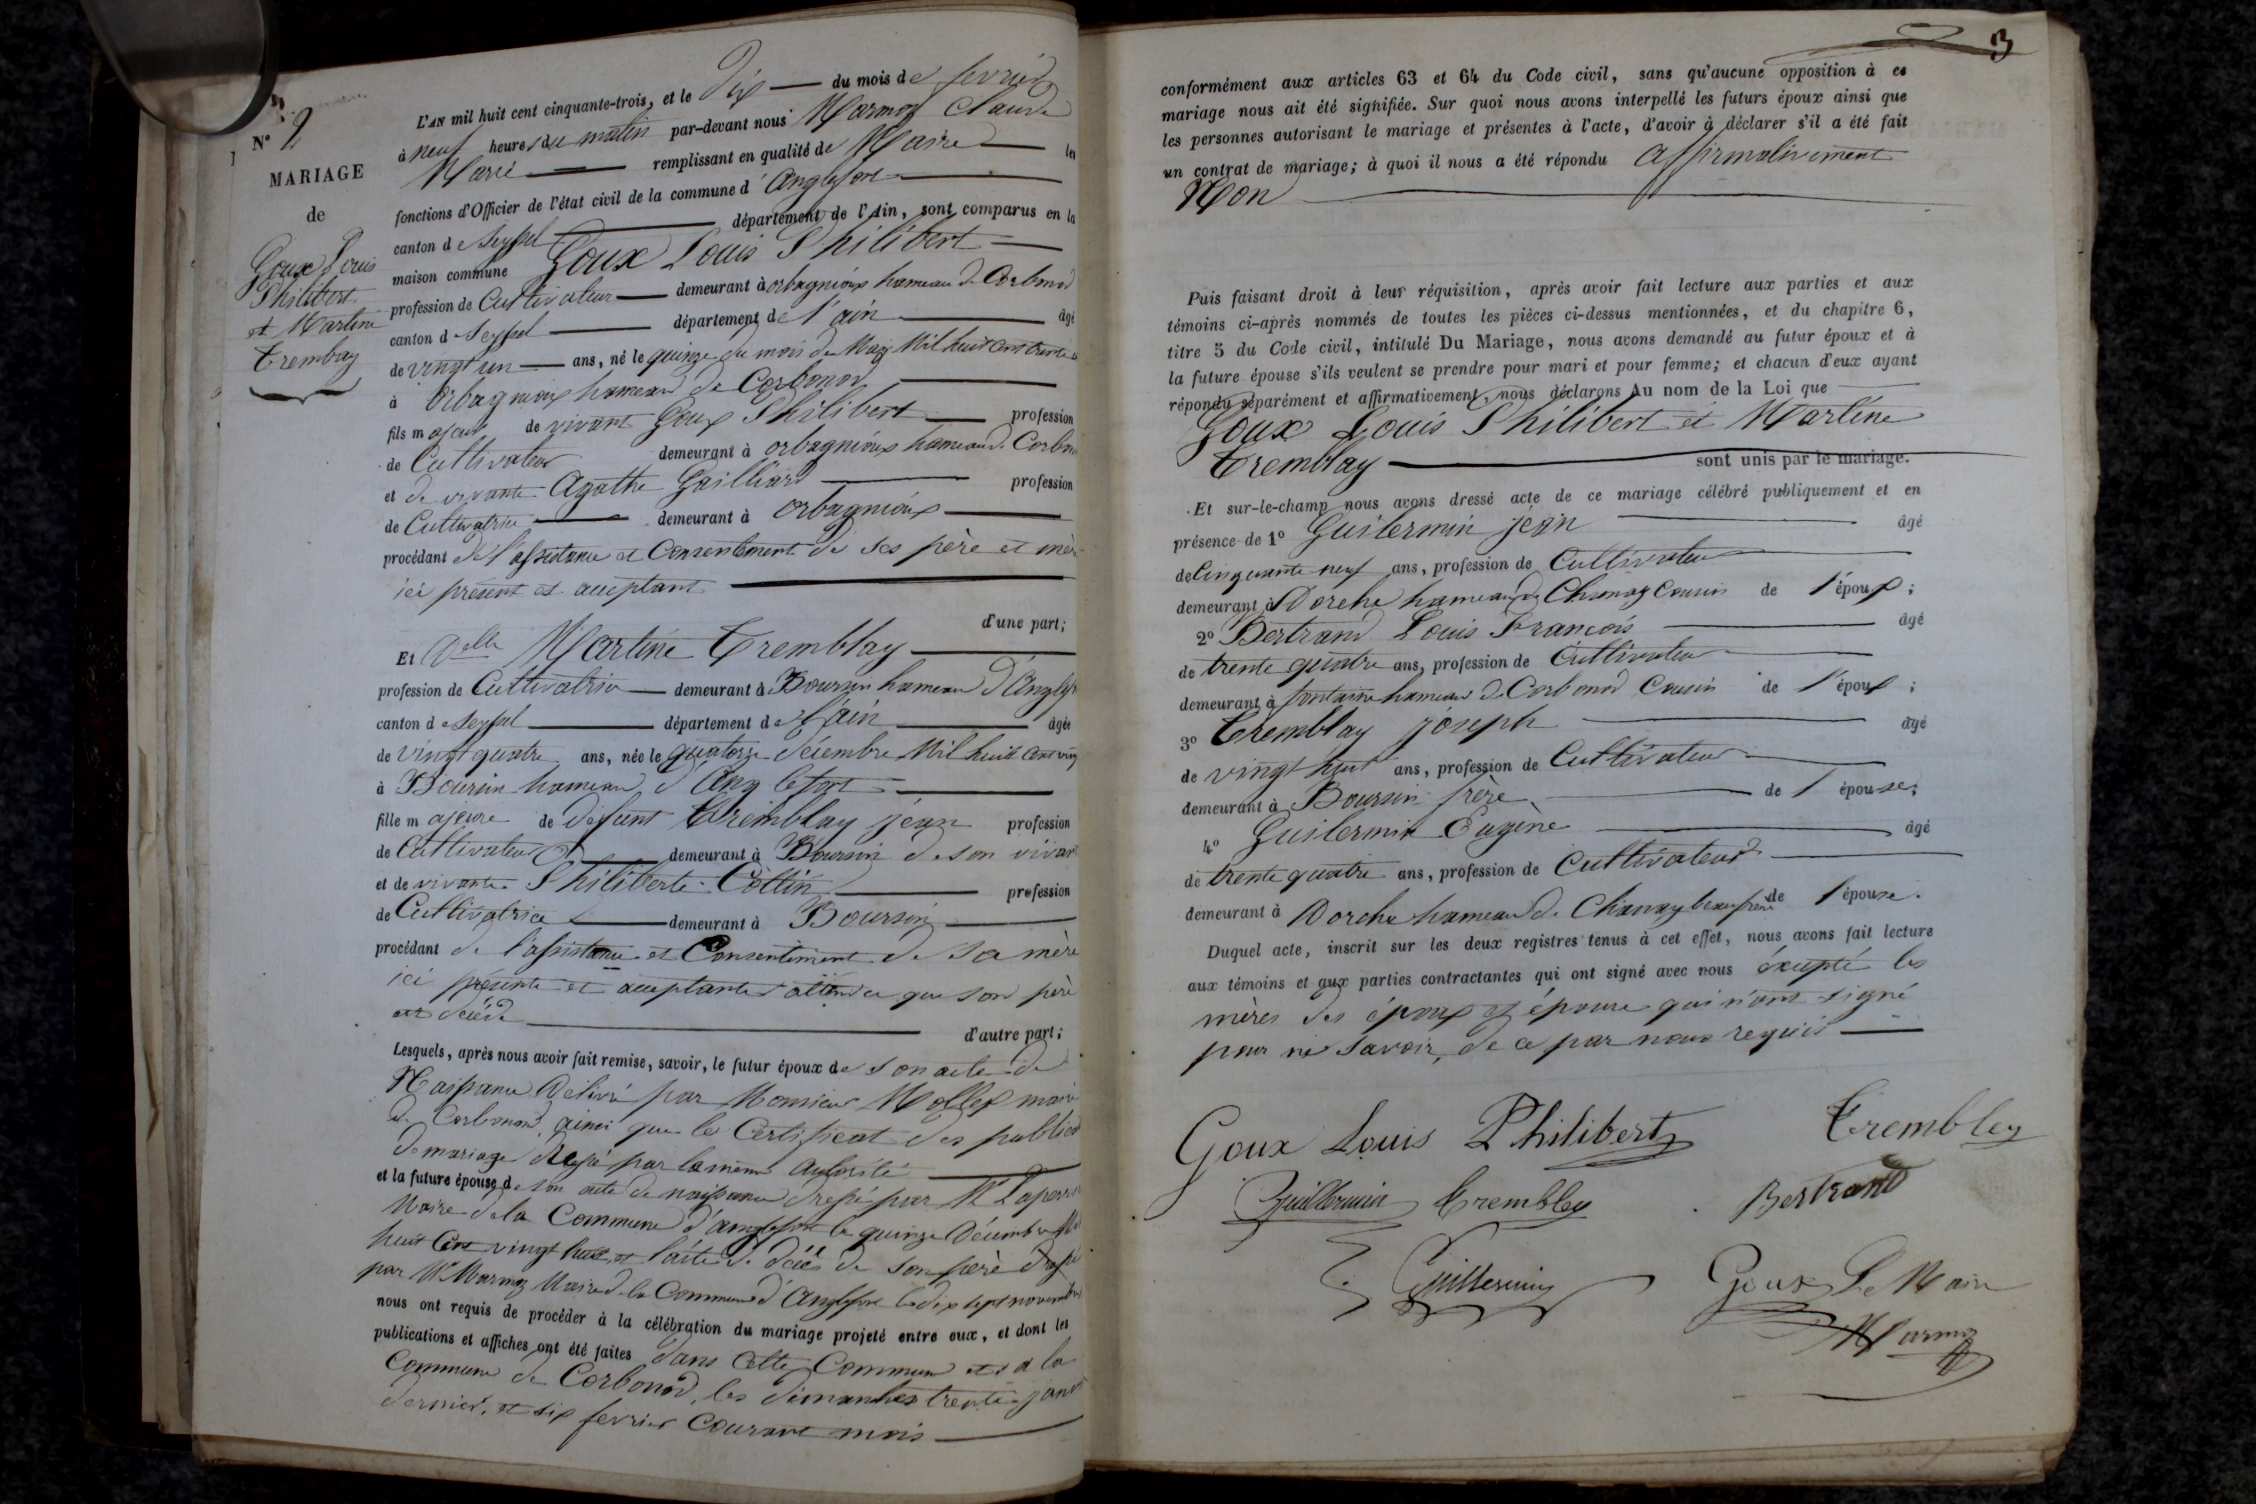 N° 2
MARIAGE
de
Goux Louis
Philibert
et Martine
Tremblay
L'AN mil huit cent cinquante-trois, et le Dix du mois de fevrier
à neuf heures du matin par-devant nous Marmoz Claude
Marie remplissant en qualité de Maire les
fonctions d'Officier de l'état civil de la commune d'Anglefort
canton de Seyssel département de l'Ain, sont comparus en la
maison commune Goux Louis Philibert
profession de Cultivateur demeurant à orbagnioux hameau de Corbonod
canton de Seyssel département de l'ain âgé
de vingt un ans, né le quinze du mois de May Mil huit cent trente
à Orbagnioux hameau de Corbonod
fils majeur de vivant Goux Philibert profession
de Cultivateur demeurant à orbagnioux hameau de Corbon
et de vivante Agathe Gailliard profession
de Cultivatrice demeurant à Orbagnioux
procédant de l'assistance et Consentement de ses père et mère
ici présent et acceptant
d'une part;
Et Delle Martine Tremblay
profession de Cultivatrice demeurant à Boursin hameau d'Anglef
canton de Seyssel département de l'ain âgée
de vingt quatre ans, née le quatorze décembre Mil huit cent ving
à Boursin hameau d'Anglefort
fille majeure de défunt Tremblay jean profession
de Cultivateur demeurant à Boursin de son vivant
et de vivante Philiberte Cottin profession
de Cultivatrice demeurant à Boursin
procédant de l'assistance et Consentement de sa mère
ici présente et acceptante attendu que son père
est décédé
d'autre part;
Lesquels, après nous avoir fait remise, savoir, le futur époux de son acte de
Naissance délivré par Monsieur Mollex maire
de Corbonod ainsi que le Certificat des public
de mariage par la même autorité
et la future épouse de son acte de naissance dressé par Mr Laperr
Maire de la Commune d'anglefort le quinze Décembre Mil
huit Cent vingt huit et l'acte de décès de son père dressé
par Mr Marmoz Maire de la Commune d'Anglefort le dix sept novembre
nous ont requis de procéder à la célébration du mariage projeté entre eux, et dont les
publications et affiches ont été faites dans cette Commune et à la
Commune de Corbonod, les dimanches trente janv
dernier, et six fevrier Courant mois
3
conformément aux articles 63 et 64 du Code civil, sans qu'aucune opposition à ce
mariage nous ait été signifiée. Sur quoi nous avons interpellé les futurs époux ainsi que
les personnes autorisant le mariage et présentes à l'acte, d'avoir à déclarer s'il a été fait
un contrat de mariage; à quoi il nous a été répondu affirmativement
Non
Puis faisant droit à leur réquisition, après avoir fait lecture aux parties et aux
témoins ci-après nommés de toutes les pièces ci-dessus mentionnées, et du chapitre 6,
titre 5 du Code civil, intitulé Du Mariage, nous avons demandé au futur époux et à
la future épouse s'ils veulent se prendre pour mari et pour femme; et chacun d'eux ayant
répondu séparément et affirmativement, nous déclarons Au nom de la Loi que
Goux Louis Philibert et Martine
Tremblay sont unis par le mariage.
Et sur-le-champ nous avons dressé acte de ce mariage célébré publiquement et en
présence de 1° Guilermin jean âgé
de Cinquante neuf ans, profession de Cultivateur
demeurant à Dorche hameau de Chanay Cousin de l'époux;
2° Bertrand Louis François âgé
de trente quatre ans, profession de Cultivateur
demeurant à fontaine hameau de Corbonod Cousin de l'époux;
3° Tremblay joseph âgé
de vingt huit ans, profession de Cultivateur
demeurant à Boursin frère de l'épouse;
4° Guilermin Eugene âgé
de trente quatre ans, profession de Cultivateur
demeurant à Dorche hameau de Chanay beaufrère de l'épouse.
Duquel acte, inscrit sur les deux registres tenus à cet effet, nous avons fait lecture
aux témoins et aux parties contractantes qui ont signé avec nous éxcepté les
mères des époux et épouse qui n'ont signé
pour ne savoir, de ce par nous requis
Goux Louis Philibert Trembley
Guillermin Trembley Bertrand
Guillermin Goux Le Maire
Marmoz